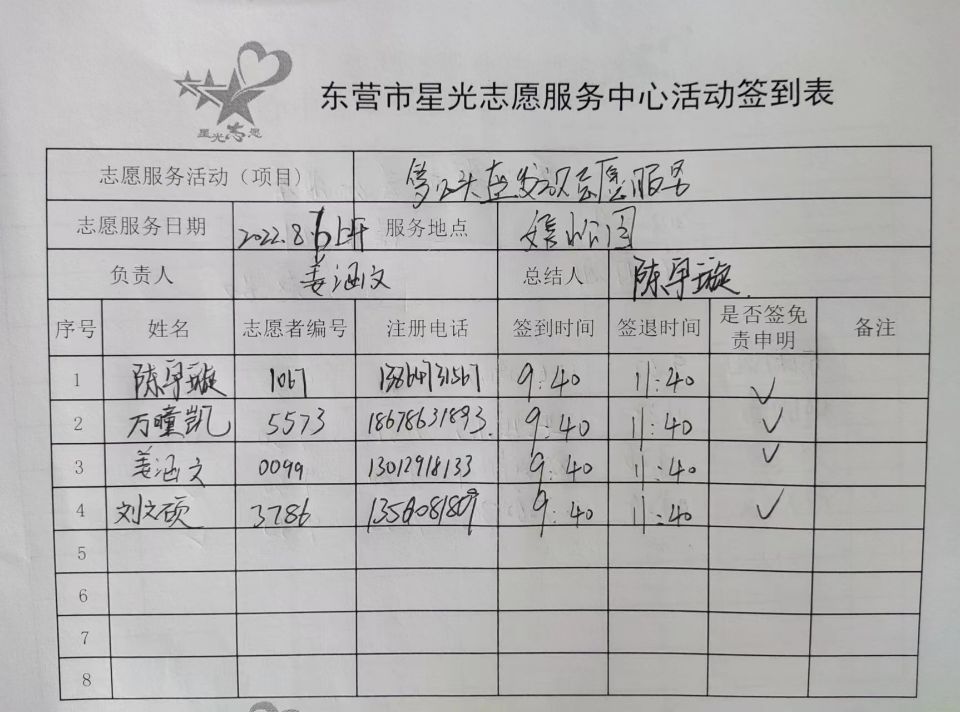 星光志愿
东营市星光志愿服务中心活动签到表
志愿服务活动（项目） 志愿服务
志愿服务日期 2022.8.6上午 服务地点 公园
负责人 姜涵文 总结人 陈早璇
序号 姓名 志愿者编号 注册电话 签到时间 签退时间 是否签免责申明 备注
1 陈早璇 1067 13864731567 9:40 11:40 ✓
2 万瞳凯 5573 18678631893. 9:40 11:40 ✓
3 姜涵文 0099 13012918133 9:40 11:40 ✓
4 刘文硕 3786 13561081809 9:40 11:40 ✓
5
6
7
8